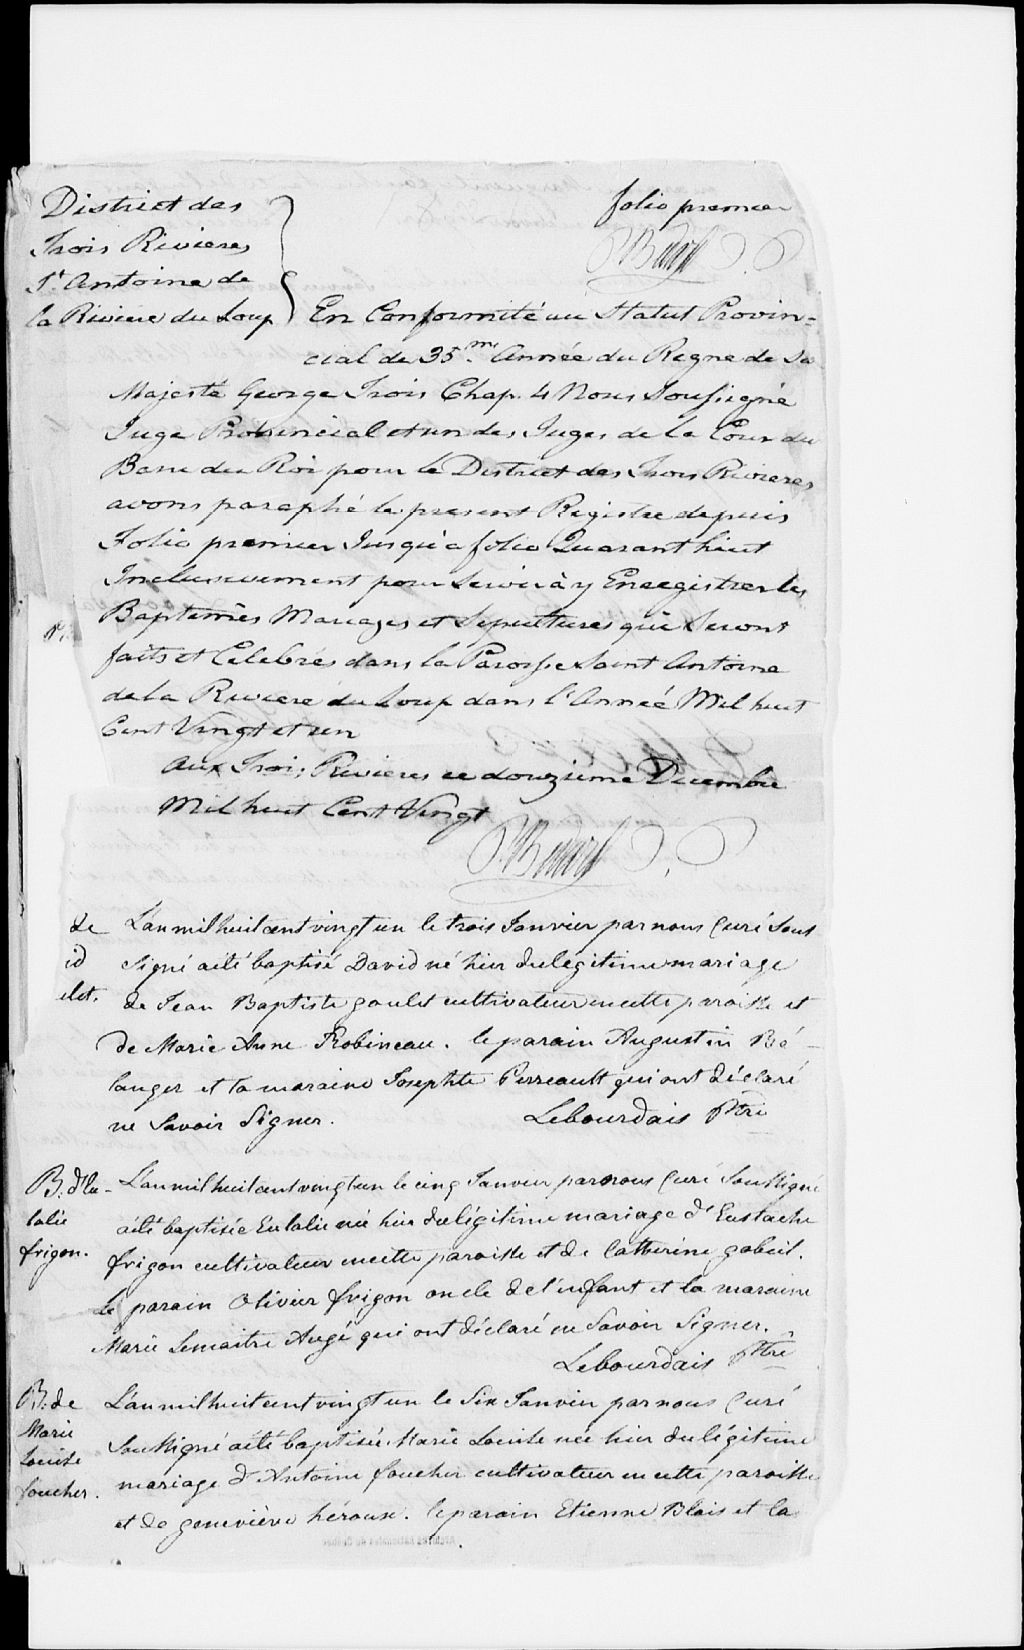 folio premier
P. Bedard
District des
Trois Rivieres
St. Antoine de
la Riviere du Loup
En Conformité au Statut Provin=
cial de 35.me Année du Regne de Sa
Majesté George Trois Chap. 4 Nous Soussigné
Juge Provincial et un des Juges de la Cour du
Banc du Roi pour le District des Trois Rivieres
avons paraphé le present Registre depuis
Folio premier Jusqu'a folio Quarant huit
Inclusivement pour Servir à y Enregistrer les
Baptemes Mariages et Sepultures qui Seront
faits et Celebrés dans la Paroisse Saint Antoine
de la Riviere du Loup dans l'Année Mil huit
Cent Vingt et un
Aux Trois Rivieres ce douzieme Decembre
Mil huit Cent Vingt
P. Bedard
de
id
let.
L'an mil huit cent vingt un le trois Janvier par nous Curé Sous
Signé a été baptisé David né hier du légitime mariage
de Jean Baptiste goulet cultivateur en cette paroisse et
de Marie Anne Robineau. le parain Augustin Bé-
langer et la maraine Josephte Perreault qui ont déclaré
ne Savoir Signer.
Lebourdais Ptre
B. d'Eu-
lalie
frigon.
L'an mil huit cent vingt un le cinq Janvier par nous Curé Soussigné
a été baptisée Eulalie née hier du légitime mariage d'Eustache
frigon cultivateur en cette paroisse et de Catherine gobeil.
le parain Olivier frigon oncle de l'enfant et la maraine
Marie Lemaitre Augé qui ont déclaré ne Savoir Signer.
Lebourdais Ptre
B. de
Marie
Louise
foucher.
L'an mil huit cent vingt un le Six Janvier par nous Curé
Soussigné a été baptisée Marie Louise née hier du légitime
mariage d'Antoine foucher cultivateur en cette paroisse
et de geneviève héroux. le parain Etienne Blais et la
Archives nationales du Québec